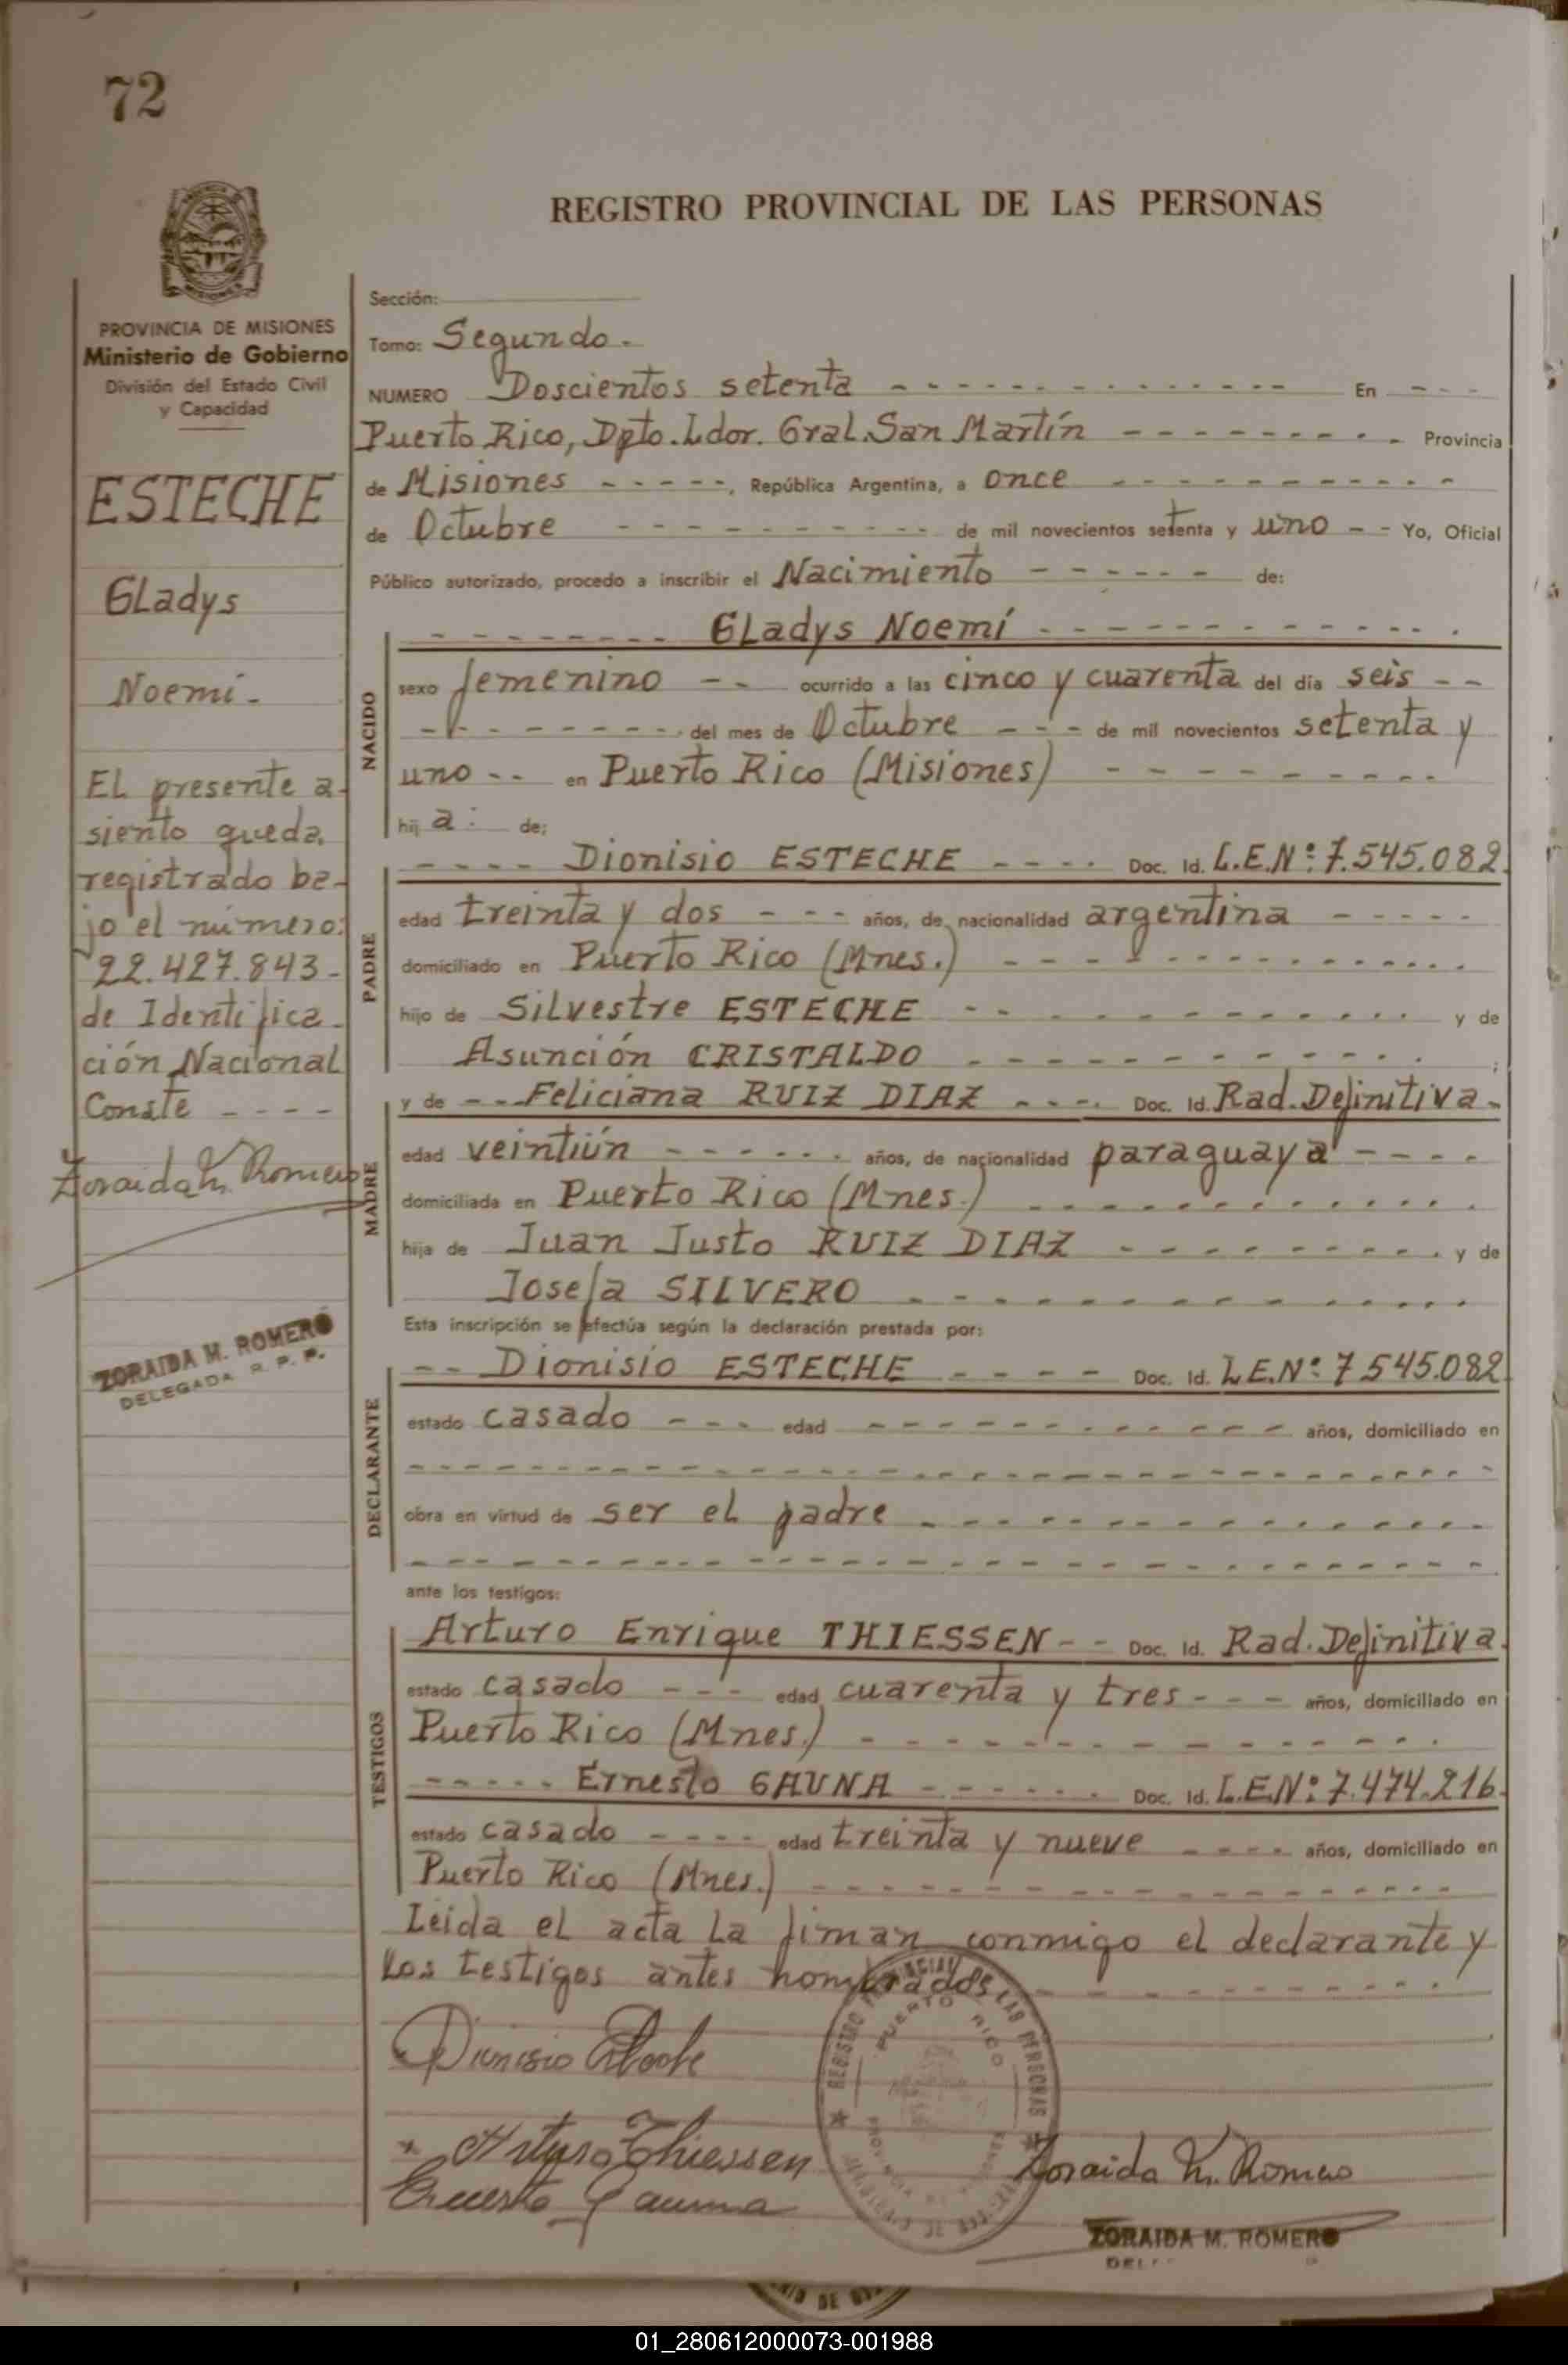 72
REGISTRO PROVINCIAL DE LAS PERSONAS
PROVINCIA DE MISIONES
Ministerio de Gobierno
División del Estado Civil
y Capacidad
ESTECHE
Gladys
Noemí-
El presente a-
siento queda
registrado ba-
jo el número:
22.427.843-
de Identifica-
ción Nacional
Conste ----
Zoraida M. Romero
ZORAIDA M. ROMERO
DELEGADA R. P. P.
Sección:
Tomo: Segundo.
NUMERO Doscientos setenta ---- En ---
Puerto Rico, Dpto. Ldor. Gral. San Martín ---- Provincia
de Misiones -----, República Argentina, a once ----
de Octubre ---- de mil novecientos setenta y uno -- Yo, Oficial
Público autorizado, procedo a inscribir el Nacimiento ------ de:
NACIDO
-------- Gladys Noemí --------
sexo femenino -- ocurrido a las cinco y cuarenta del día seis --
-------- del mes de Octubre --- de mil novecientos setenta y
uno -- en Puerto Rico (Misiones) --------
hij a: de:
PADRE
---- Dionisio ESTECHE ---- Doc. Id. L.E.Nº: 7.545.082.
edad treinta y dos --- años, de nacionalidad argentina -----
domiciliado en Puerto Rico (Mnes.) --------
hijo de Silvestre ESTECHE -------- y de
Asunción CRISTALDO -------- ;
MADRE
y de -- Feliciana RUIZ DIAZ ---- Doc. Id. Rad. Definitiva-
edad veintiún ------ años, de nacionalidad paraguaya ----
domiciliada en Puerto Rico (Mnes.) --------
hija de Juan Justo RUIZ DIAZ -------- y de
Josefa SILVERO --------
Esta inscripción se efectúa según la declaración prestada por:
DECLARANTE
-- Dionisio ESTECHE ---- Doc. Id. L.E.Nº: 7545.082
estado casado --- edad -------- años, domiciliado en
--------
obra en virtud de ser el padre --------
--------
ante los testigos:
TESTIGOS
Arturo Enrique THIESSEN -- Doc. Id. Rad. Definitiva.
estado casado --- edad cuarenta y tres --- años, domiciliado en
Puerto Rico (Mnes.) --------
----- Ernesto GAUNA ------ Doc. Id. L.E.Nº: 7.474.216.
estado casado ---- edad treinta y nueve ---- años, domiciliado en
Puerto Rico (Mnes.) --------
Leida el acta la fiman conmigo el declarante y
los testigos antes nombrados --------
Dionisio Esteche
Arturo Thiessen
Ernesto Gauna
REGISTRO PROVINCIAL DE LAS PERSONAS
PUERTO RICO
Zoraida M. Romero
ZORAIDA M. ROMERO
01_280612000073-001988